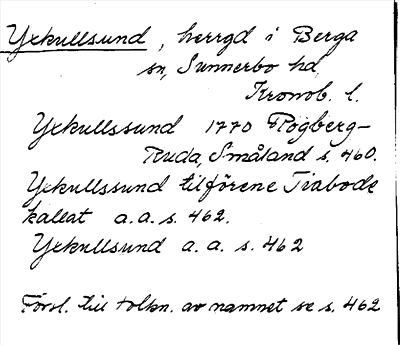 Yxkullsund, herrgd i Berga
sn, Sunnerbo hd,
Kronob. l.
Yxkullssund 1770 Rogberg-
Ruda, Småland s. 460.
Yxkullssund tilförene Tiabode
kallat a.a. s. 462.
Yxkullsund a. a. s. 462
Försl. till tolkn. av namnet se s. 462